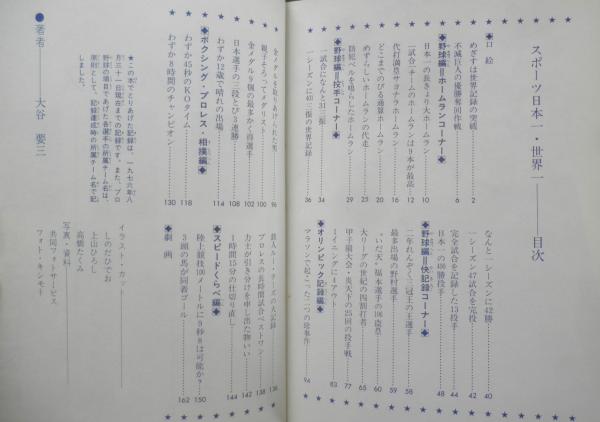 スポーツ日本一・世界一――目次
◆口絵
めざすは世界記録の突破 2
不滅巨人の優勝奪回作戦 6
◆野球編=ホームランコーナー◆
日本一の長きょり大ホームラン 10
一試合一チームのホームランは9本が最高 12
代打満塁サヨナラホームラン 16
どこまでのびる通算ホームラン 20
めずらしいホームランの代走 25
防犯ベルを鳴らしたホームラン 29
◆野球編=投手コーナー◆
一試合になんと31三振 34
一シーズンに401三振の世界記録 36
なんと一シーズンに42勝 40
一シーズン47試合を完投 42
完全試合を記録した13投手 44
日本一の400勝投手 48
◆野球編=快記録コーナー◆
二年れんぞく三冠王の王選手 58
最多出場の野村選手 59
"いだ天"福本選手の106盗塁 60
大リーグの世紀の四割打者 65
甲子園大会・炎天下の25回の投手戦 77
1イニングに11アウト 83
◆オリンピック記録編◆
マラソンで起こった二つの珍事件 94
金メダルを取りあげられた男 96
親子そろってメダリスト 100
金メダル9個の最多かく得選手 102
日本選手の三段とび3連勝 108
わずか12歳で晴れの出場 114
◆ボクシング・プロレス・相撲編◆
わずか45秒のKOタイム 118
わずか8時間のチャンピオン 130
鉄人ルー・テーズの大記録 136
プロレスの長時間試合ベストワン 138
力士が引き分けを申し出た物いい 142
1時間15分の仕切り直し 144
◆スピードくらべ編◆
陸上競技100メートルに9秒8は可能か? 150
3頭の馬が同着ゴール 162
◆劇画
イラスト・カット
しのだひでお
上山ひろし
高橋たくみ
写真・資料
共同フォトサービス
フォト・キシモト
★この本でとりあげた記録は、一九七六年八
月三十一日現在までの記録です。また、プロ
野球の項目であげた各選手の所属チーム名は、
原則として、記録達成時の所属チーム名で記
しました。
●著者――大谷 要三